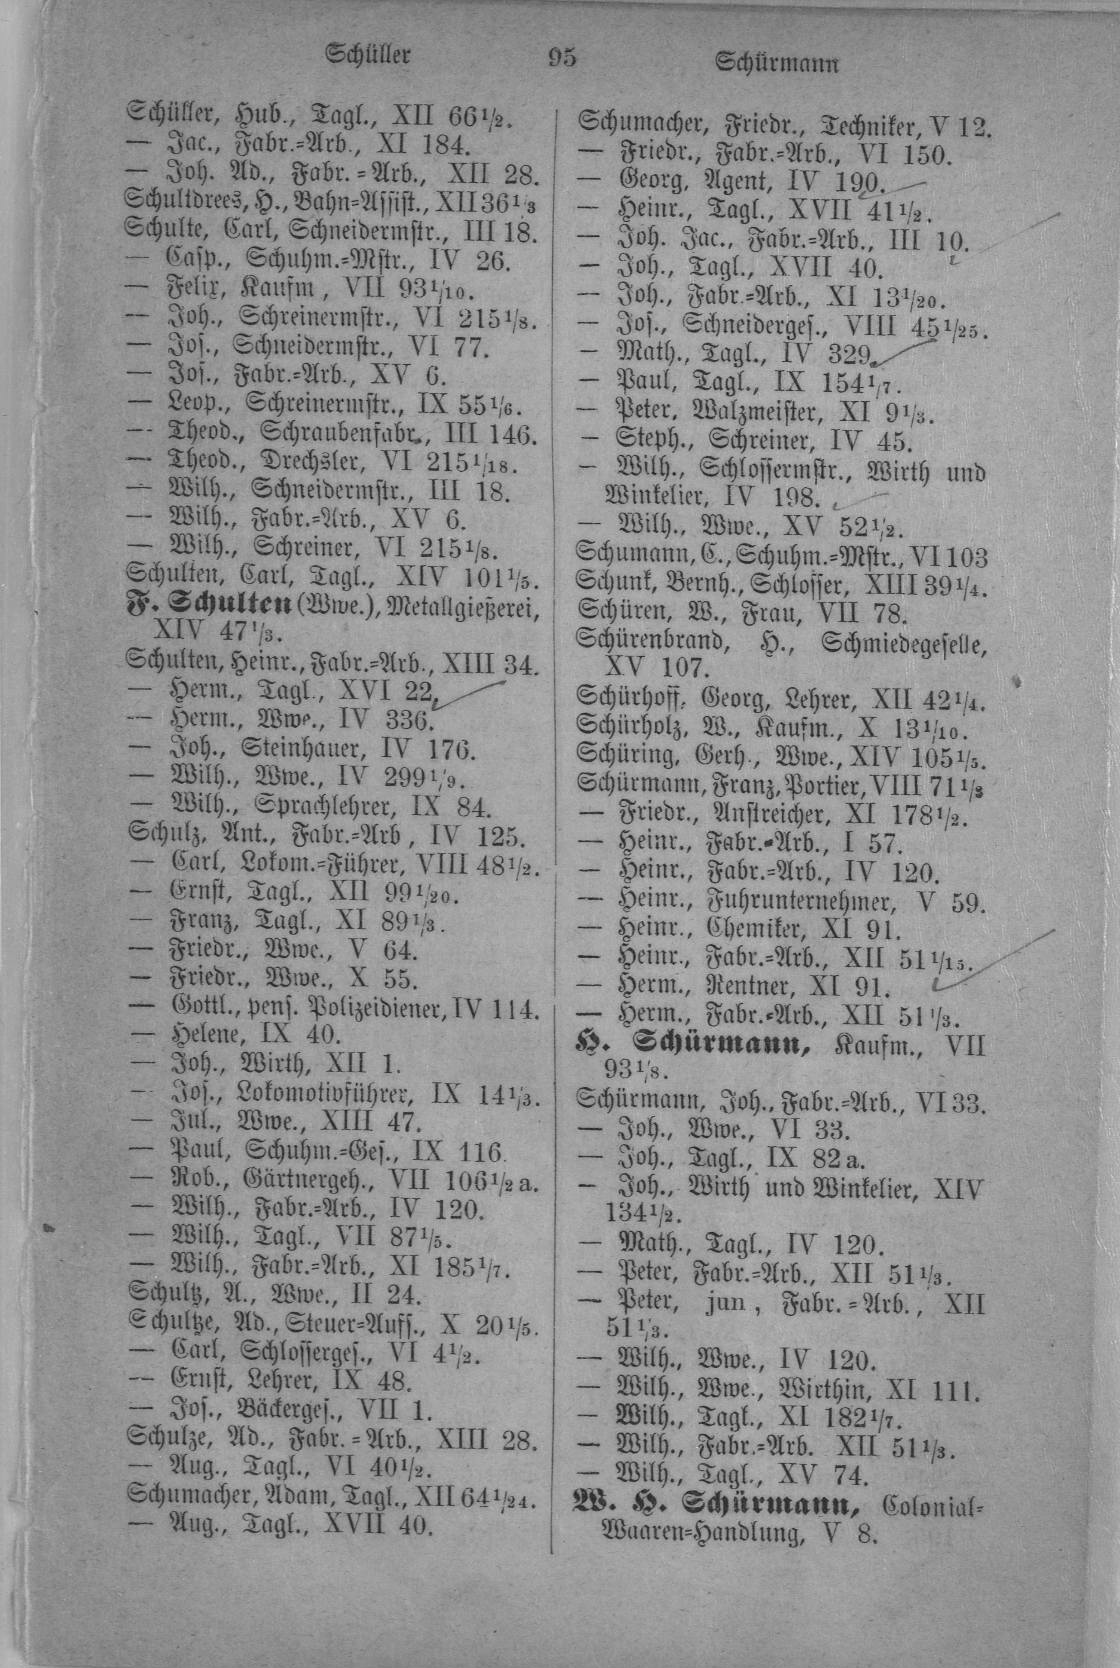 Schüller 95 Schürmann
Schüller, Hub., Tagl., XII 66 1/2.
— Jac., Fabr.=Arb., XI 184.
— Joh. Ad., Fabr.=Arb., XII 28.
Schultdrees, H., Bahn=Assist., XII 36 1/3
Schulte, Carl, Schneidermstr., III 18.
— Casp., Schuhm.=Mstr., IV 26.
— Felix, Kaufm, VII 93 1/10.
— Joh., Schreinermstr., VI 215 1/8.
— Jos., Schneidermstr., VI 77.
— Jos., Fabr.=Arb., XV 6.
— Leop., Schreinermstr., IX 55 1/6.
— Theod., Schraubenfabr., III 146.
— Theod., Drechsler, VI 215 1/18.
— Wilh., Schneidermstr., III 18.
— Wilh., Fabr.=Arb., XV 6.
— Wilh., Schreiner, VI 215 1/8.
Schulten, Carl, Tagl., XIV 101 1/5.
F. Schulten (Wwe.), Metallgießerei,
XIV 47 1/3.
Schulten, Heinr., Fabr.=Arb., XIII 34.
— Herm., Tagl., XVI 22.
— Herm., Wwe., IV 336.
— Joh., Steinhauer, IV 176.
— Wilh., Wwe., IV 299 1/9.
— Wilh., Sprachlehrer, IX 84.
Schulz, Ant., Fabr.=Arb, IV 125.
— Carl, Lokom.=Führer, VIII 48 1/2.
— Ernst, Tagl., XII 99 1/20.
— Franz, Tagl., XI 89 1/3.
— Friedr., Wwe., V 64.
— Friedr., Wwe., X 55.
— Gottl., pens. Polizeidiener, IV 114.
— Helene, IX 40.
— Joh., Wirth, XII 1.
— Jos., Lokomotivführer, IX 14 1/3.
— Jul., Wwe., XIII 47.
— Paul, Schuhm.=Ges., IX 116.
— Rob., Gärtnergeh., VII 106 1/2 a.
— Wilh., Fabr.=Arb., IV 120.
— Wilh., Tagl., VII 87 1/5.
— Wilh., Fabr.=Arb., XI 185 1/7.
Schultz, A., Wwe., II 24.
Schultze, Ad., Steuer=Auff., X 20 1/5.
— Carl, Schlosserges., VI 4 1/2.
— Ernst, Lehrer, IX 48.
— Jos., Bäckerges., VII 1.
Schulze, Ad., Fabr.=Arb., XIII 28.
— Aug., Tagl., VI 40 1/2.
Schumacher, Adam, Tagl., XII 64 1/24.
— Aug., Tagl., XVII 40.
Schumacher, Friedr., Techniker, V 12.
— Friedr., Fabr.=Arb., VI 150.
— Georg, Agent, IV 190.
— Heinr., Tagl., XVII 41 1/2.
— Joh. Jac., Fabr.=Arb., III 10.
— Joh., Tagl., XVII 40.
— Joh., Fabr.=Arb., XI 13 1/20.
— Jos., Schneiderges., VIII 45 1/25.
— Math., Tagl., IV 329.
— Paul, Tagl., IX 154 1/7.
— Peter, Walzmeister, XI 9 1/3.
— Steph., Schreiner, IV 45.
— Wilh., Schlossermstr., Wirth und
Winkelier, IV 198.
— Wilh., Wwe., XV 52 1/2.
Schumann, C., Schuhm.=Mstr., VI 103
Schunk, Bernh., Schlosser, XIII 39 1/4.
Schüren, W., Frau, VII 78.
Schürenbrand, H., Schmiedegeselle,
XV 107.
Schürhoff, Georg, Lehrer, XII 42 1/4.
Schürholz, W., Kaufm., X 13 1/10.
Schüring, Gerh., Wwe., XIV 105 1/5.
Schürmann, Franz, Portier, VIII 71 1/3
— Friedr., Anstreicher, XI 178 1/2.
— Heinr., Fabr.=Arb., I 57.
— Heinr., Fabr.=Arb., IV 120.
— Heinr., Fuhrunternehmer, V 59.
— Heinr., Chemiker, XI 91.
— Heinr., Fabr.=Arb., XII 51 1/15.
— Herm., Rentner, XI 91.
— Herm., Fabr.=Arb., XII 51 1/3.
H. Schürmann, Kaufm., VII
93 1/8.
Schürmann, Joh., Fabr.=Arb., VI 33.
— Joh., Wwe., VI 33.
— Joh., Tagl., IX 82 a.
— Joh., Wirth und Winkelier, XIV
134 1/2.
— Math., Tagl., IV 120.
— Peter, Fabr.=Arb., XII 51 1/3.
— Peter, jun, Fabr.=Arb., XII
51 1/3.
— Wilh., Wwe., IV 120.
— Wilh., Wwe., Wirthin, XI 111.
— Wilh., Tagl., XI 182 1/7.
— Wilh., Fabr.=Arb. XII 51 1/3.
— Wilh., Tagl., XV 74.
W. H. Schürmann, Colonial=
Waaren=Handlung, V 8.